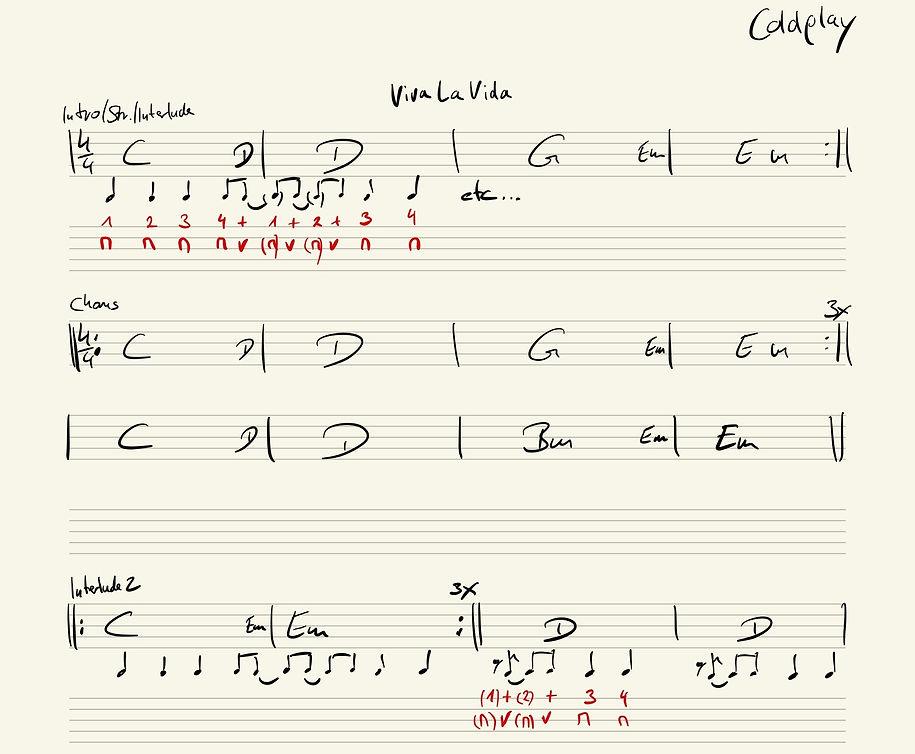 Coldplay
Viva La Vida
Intro/Str./Interlude
4/4 C D D G Em Em
etc...
1 2 3 4 + 1 + 2 + 3 4
(n) v (n) v n n
Chorus
3x
4/4 C D D G Em Em
C D D Bm Em Em
Interlude 2 3x
C Em Em D D
(1) + (2) + 3 4
(n) v (n) v n n